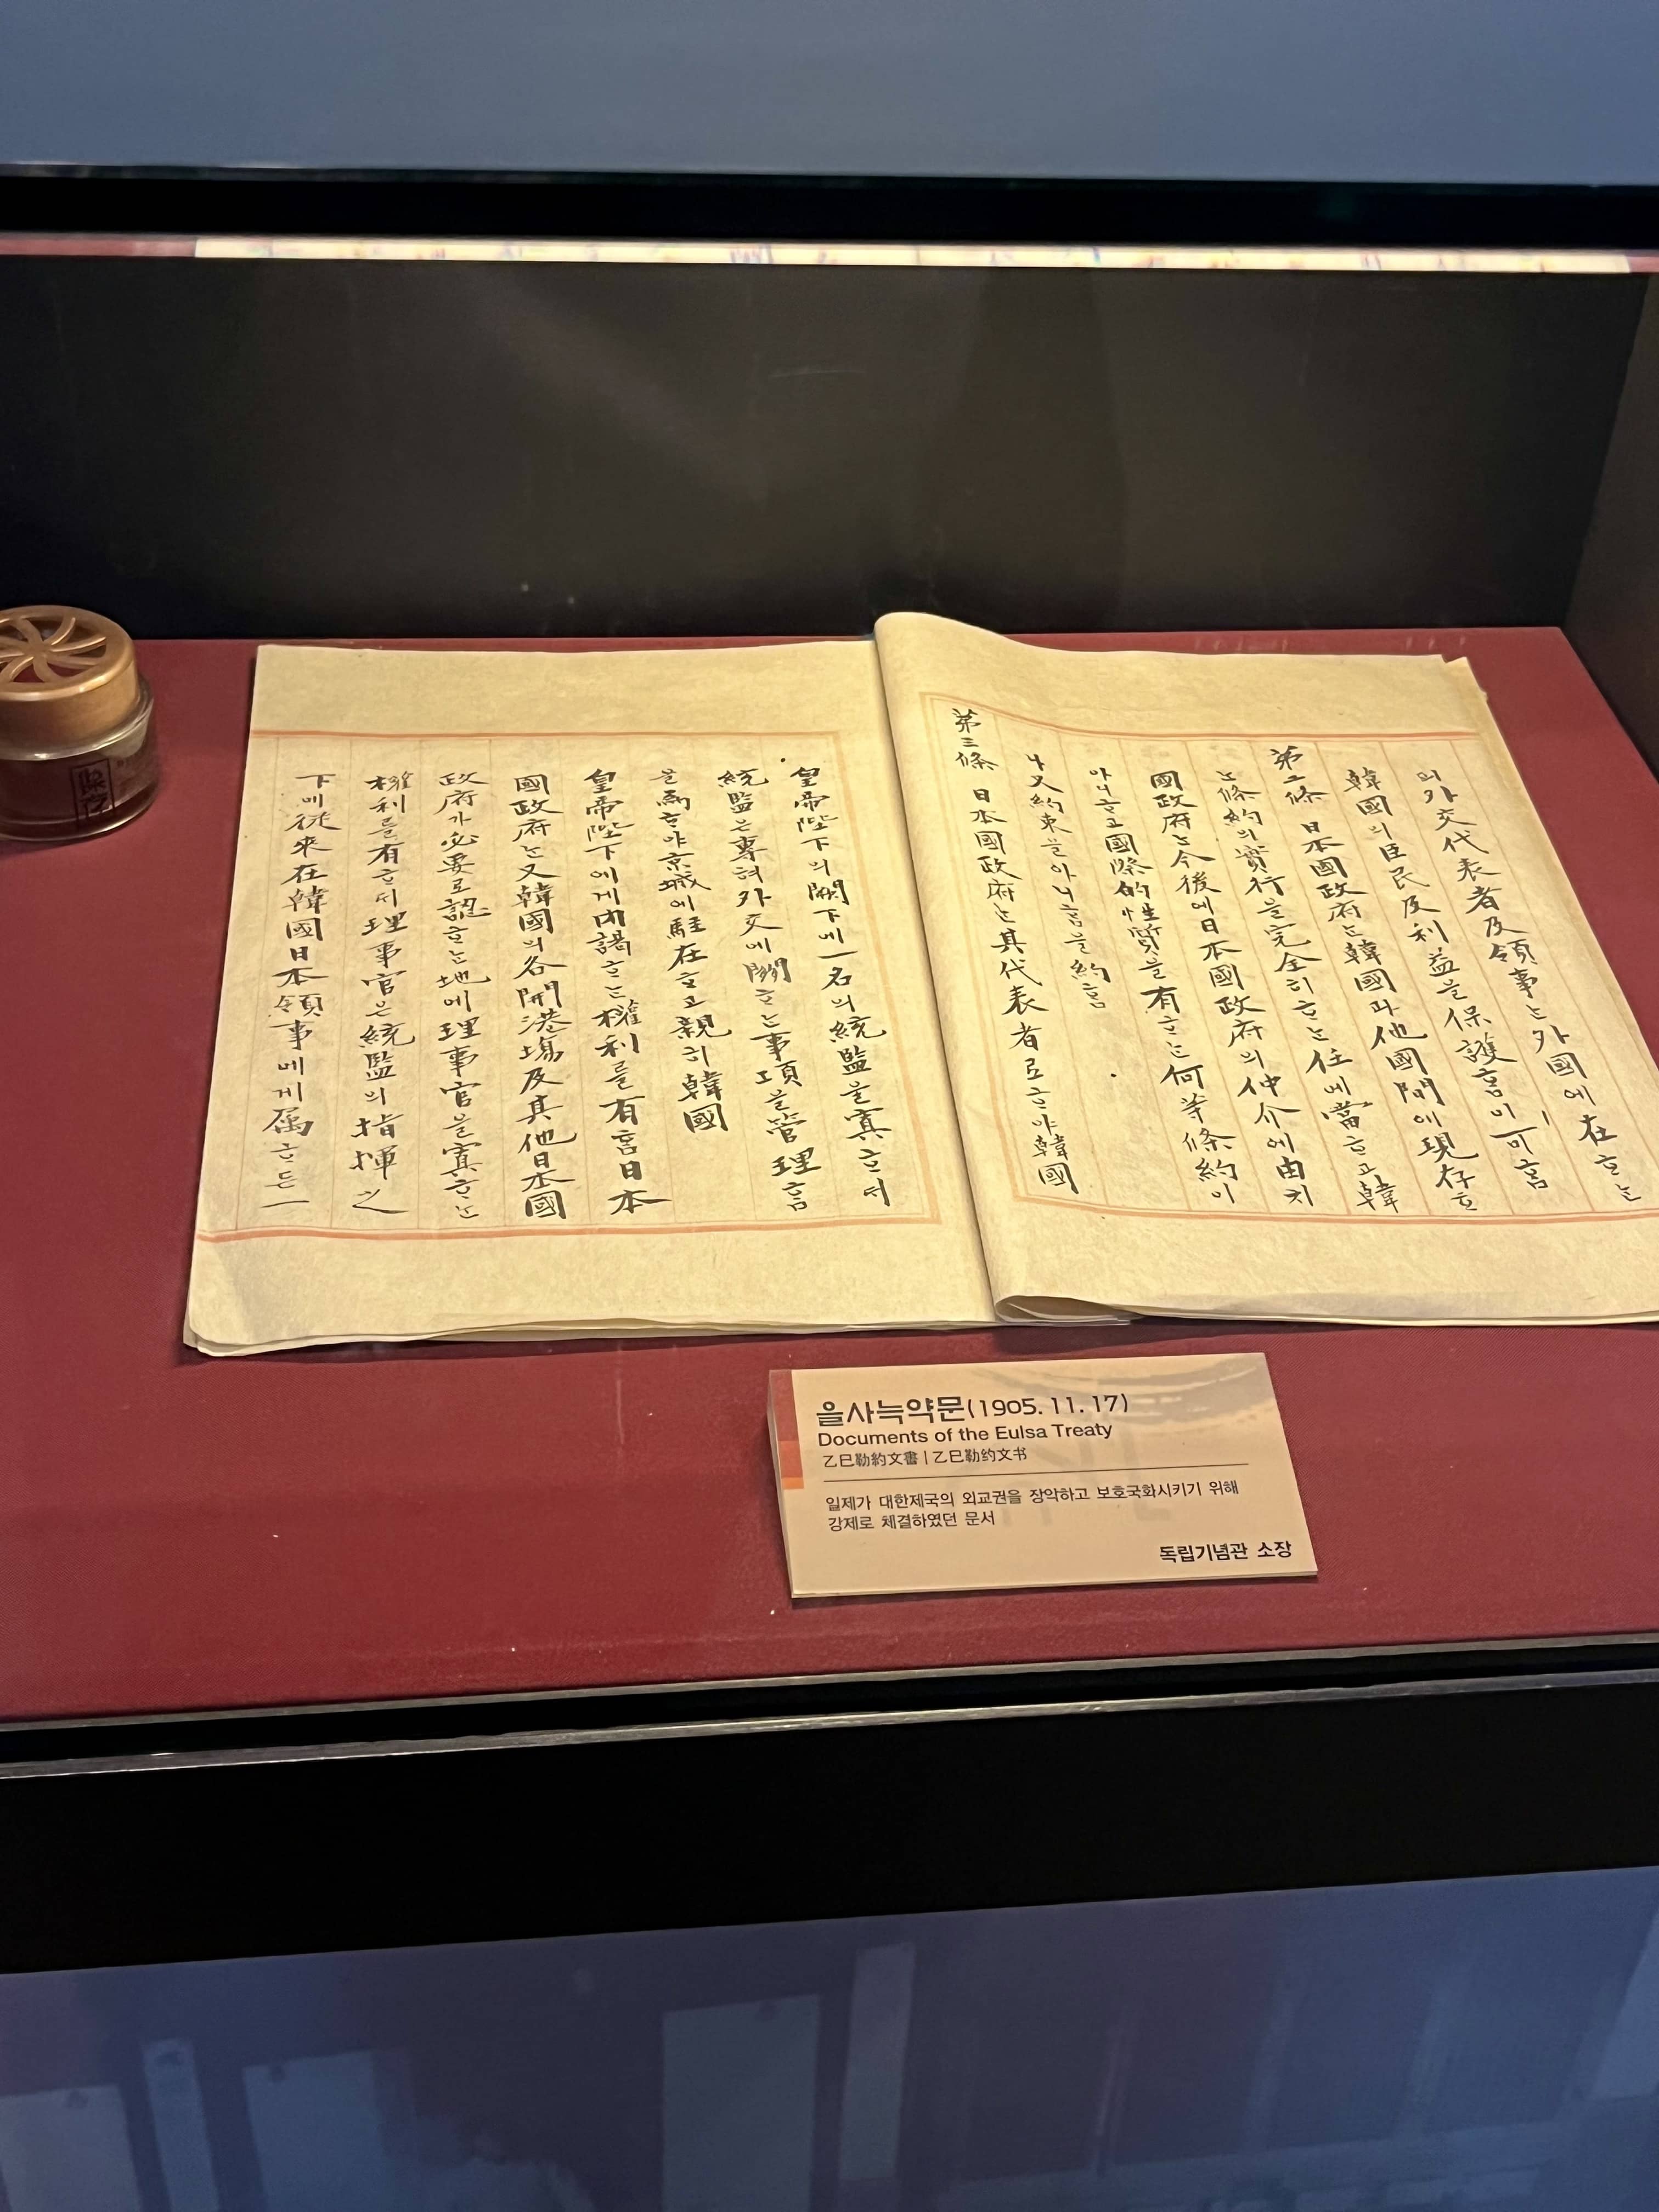 의 外交代表者及領事는 外國에 在ᄒᆞ는
韓國의 臣民及利益을 保護ᄒᆞᆷ이 可ᄒᆞᆷ
第二條 日本國政府는 韓國과 他國間에 現存ᄒᆞ
는 條約의 實行을 完全히 ᄒᆞ는 任에 當ᄒᆞ고 韓
國政府는 今後에 日本國政府의 仲介에 由치
아니ᄒᆞ고 國際的 性質을 有ᄒᆞ는 何等 條約이
나 又 約束을 아니ᄒᆞᆷ을 約ᄒᆞᆷ
第三條 日本國政府는 其代表者로 ᄒᆞ야 韓國
皇帝陛下의 闕下에 一名의 統監을 寘ᄒᆞ되
統監은 專혀 外交에 關ᄒᆞ는 事項을 管理ᄒᆞᆷ
을 爲ᄒᆞ야 京城에 駐在ᄒᆞ고 親히 韓國
皇帝陛下에게 內謁ᄒᆞ는 權利를 有ᄒᆞᆷ 日本
國政府는 又 韓國의 各開港場及其他 日本國
政府가 必要로 認ᄒᆞ는 地에 理事官을 寘ᄒᆞ는
權利를 有ᄒᆞ되 理事官은 統監의 指揮之
下에 從來 在韓國日本領事에게 屬ᄒᆞ든 一
을사늑약문(1905. 11. 17)
Documents of the Eulsa Treaty
乙巳勒約文書 | 乙巳勒约文书
일제가 대한제국의 외교권을 장악하고 보호국화시키기 위해
강제로 체결하였던 문서
독립기념관 소장